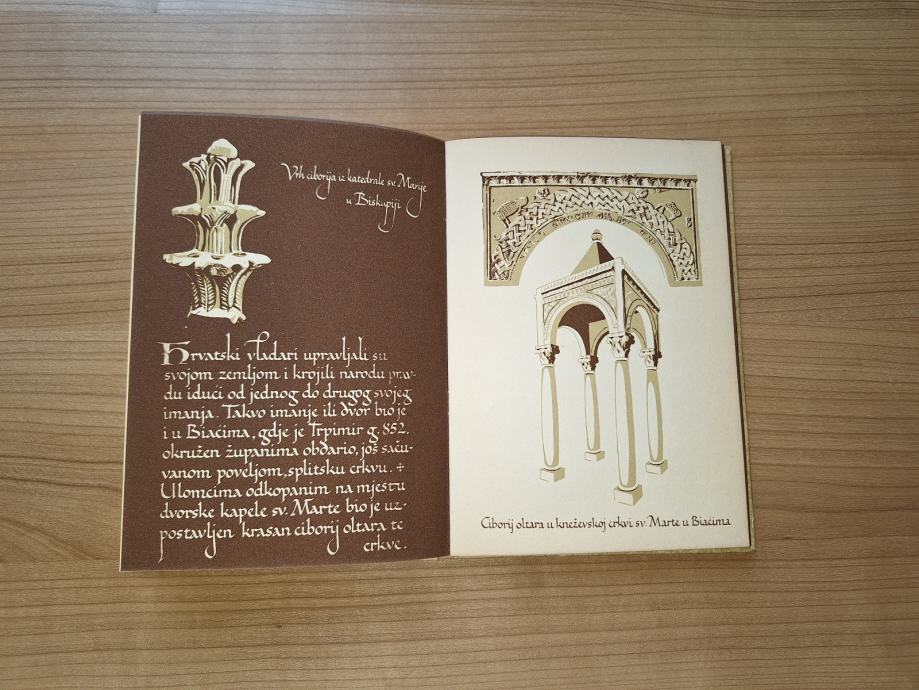 Vrh ciborija iz katedrale sv. Marije
u Biskupiji
Hrvatski vladari upravljali su
svojom zemljom i krojili narodu prav-
du idući od jednog do drugog svojeg
imanja. Takvo imanje ili dvor bio je
i u Biaćima, gdje je Trpimir g. 852.
okružen županima obdario, još saču-
vanom poveljom, splitsku crkvu. +
Ulomcima odkopanim na mjestu
dvorske kapele sv. Marte bio je uz-
postavljen krasan ciborij oltara te
crkve.
Ciborij oltara u kneževskoj crkvi sv. Marte u Biaćima